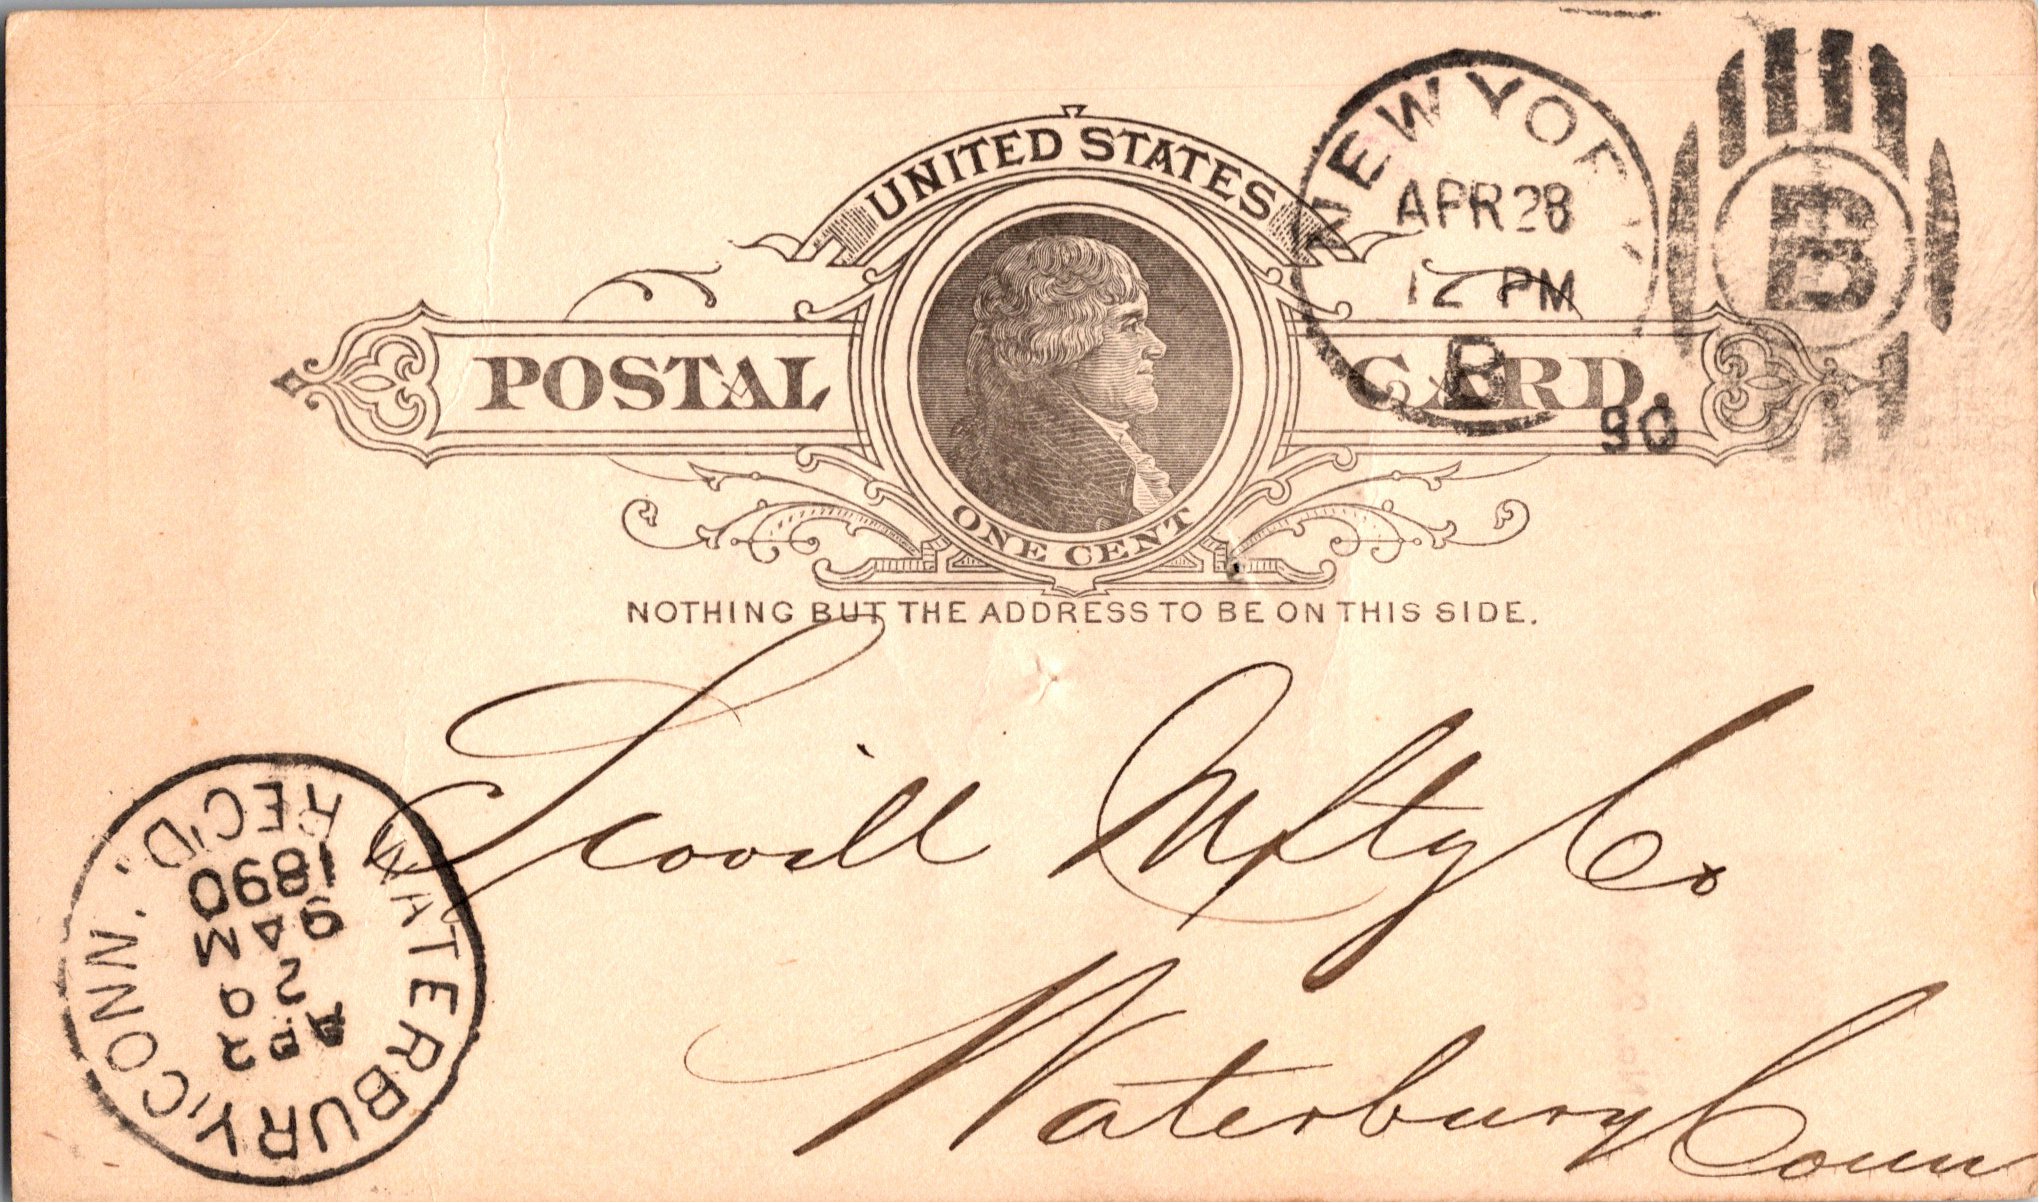 UNITED STATES
POSTAL CARD.
ONE CENT
NOTHING BUT THE ADDRESS TO BE ON THIS SIDE.
NEW YORK
APR 28
12 PM
B
90
B
Scovill Mftg Co
Waterbury Conn
WATERBURY, CONN.
REC'D.
1890
9 A M